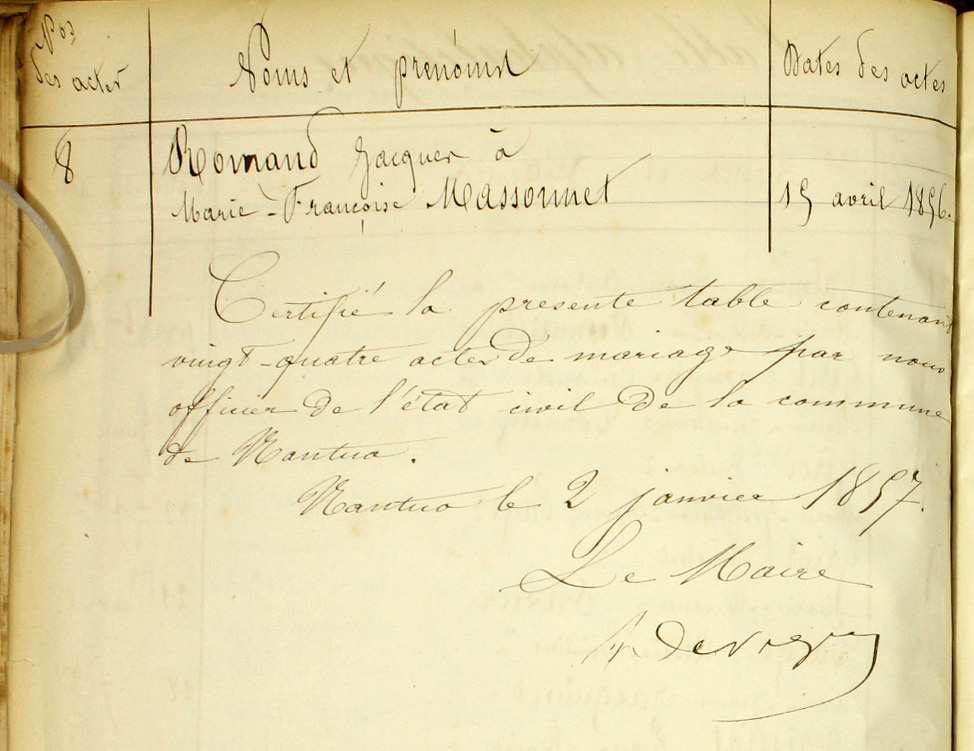 Nos
des actes
Noms et prénoms
Dates des actes
8
Romand Jacques à
Marie-Françoise Massonnet
15 avril 1856.
Certifié la presente table contenant
vingt-quatre actes de mariage par nous
officier de l'état civil de la commune
de Nantua.
Nantua le 2 janvier 1857.
Le Maire